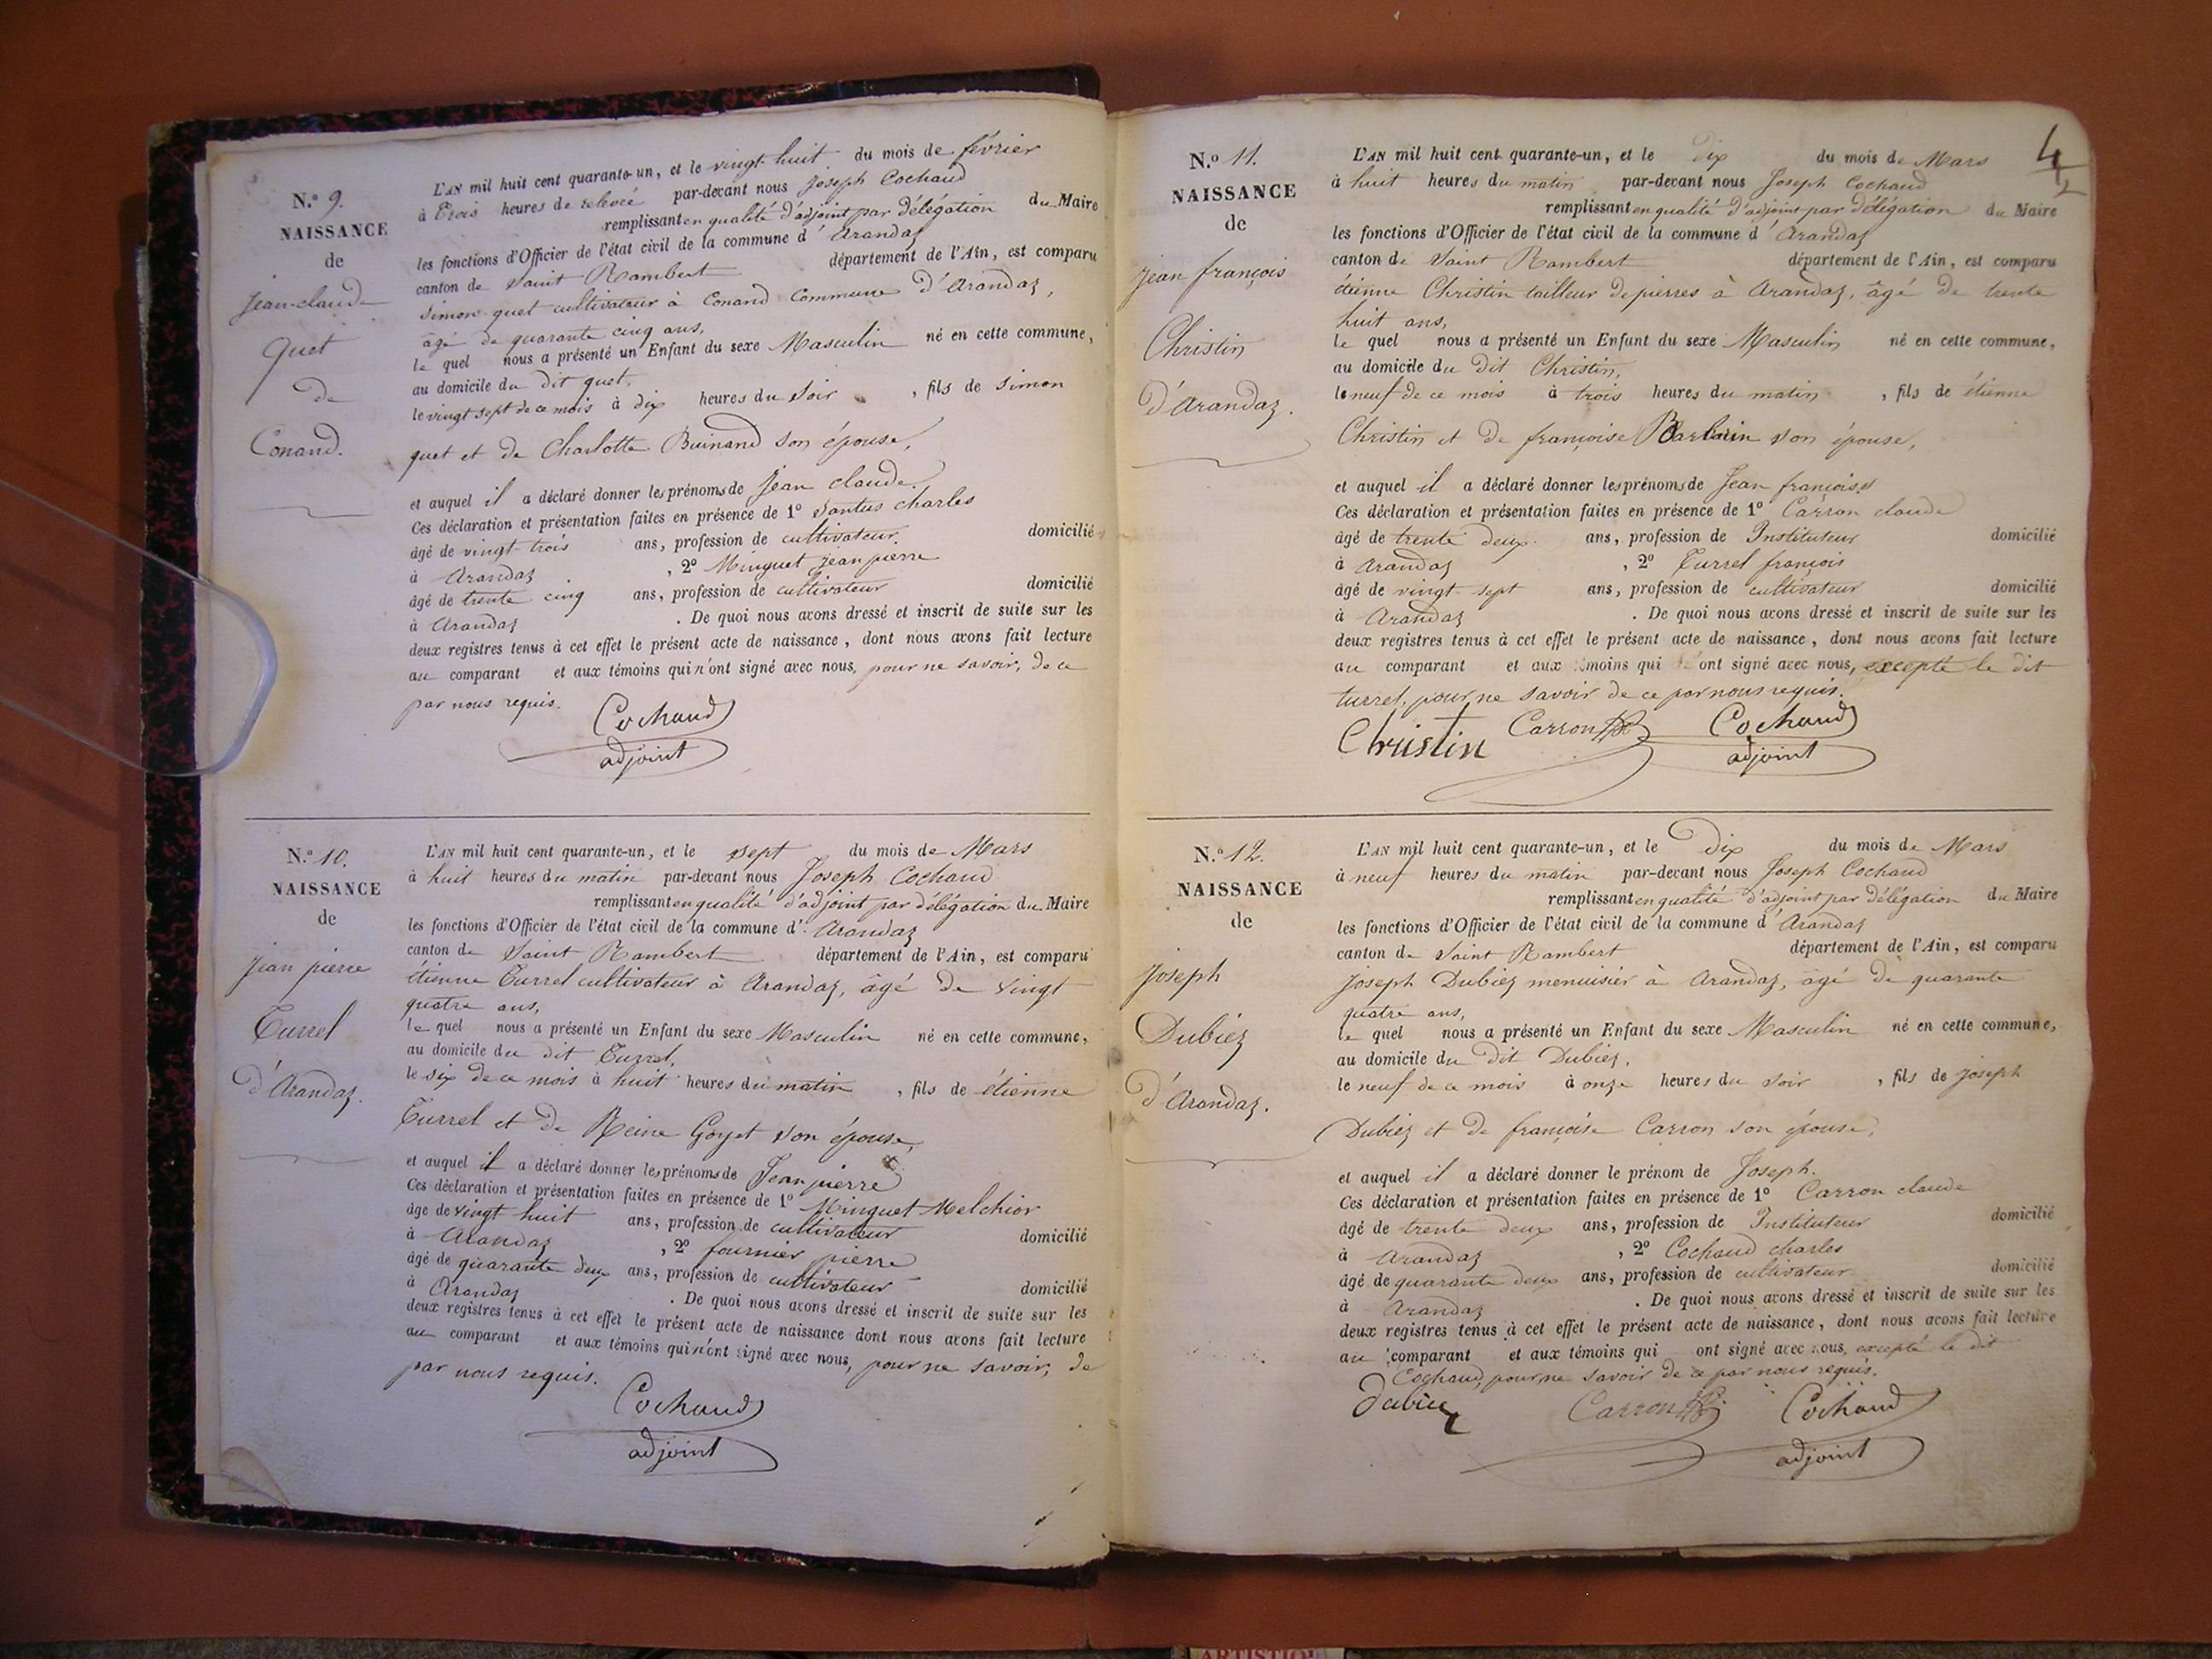 N.º 9.
NAISSANCE
de
Jean-claude
quet
de
Conand.
L'AN mil huit cent quarante-un, et le vingt huit du mois de février
à trois heures de relevée par-devant nous Joseph Cochaud
remplissant en qualité d'adjoint par délégation du Maire
les fonctions d'Officier de l'état civil de la commune d' Arandaz
canton de Saint Rambert département de l'Ain, est comparu
Simon quet cultivateur à Conand Commune d'Arandaz,
âgé de quarante cinq ans,
le quel nous a présenté un Enfant du sexe Masculin né en cette commune,
au domicile du dit quet,
le vingt sept de ce mois à dix heures du soir , fils de Simon
quet et de Charlotte Buinand son épouse,
et auquel il a déclaré donner les prénoms de Jean claude.
Ces déclaration et présentation faites en présence de 1º Santus charles
âgé de vingt-trois ans, profession de cultivateur. domicilié
à Arandaz , 2º Minguet jean pierre
âgé de trente cinq ans, profession de cultivateur domicilié
à Arandaz . De quoi nous avons dressé et inscrit de suite sur les
deux registres tenus à cet effet le présent acte de naissance, dont nous avons fait lecture
au comparant et aux témoins qui n'ont signé avec nous, pour ne savoir, de ce
par nous requis.
Cochaud
adjoint
N.º 10.
NAISSANCE
de
jean pierre
Turrel
d'Arandaz.
L'AN mil huit cent quarante-un, et le sept du mois de Mars
à huit heures du matin par-devant nous Joseph Cochaud
remplissant en qualité d'adjoint par délégation du Maire
les fonctions d'Officier de l'état civil de la commune d' Arandaz
canton de Saint Rambert département de l'Ain, est comparu
étienne Turrel cultivateur à Arandaz, âgé de vingt
quatre ans,
le quel nous a présenté un Enfant du sexe Masculin né en cette commune,
au domicile du dit Turrel,
le six de ce mois à huit heures du matin , fils de étienne
Turrel et de Reine Goyet son épouse,
et auquel il a déclaré donner les prénoms de Jean pierre
Ces déclaration et présentation faites en présence de 1º Minguet Melchior
âgé de vingt huit ans, profession de cultivateur domicilié
à Arandaz , 2º fournier pierre
âgé de quarante deux ans, profession de cultivateur domicilié
à Arandaz . De quoi nous avons dressé et inscrit de suite sur les
deux registres tenus à cet effet le présent acte de naissance dont nous avons fait lecture
au comparant et aux témoins qui n'ont signé avec nous, pour ne savoir, de
par nous requis.
Cochaud
adjoint
4
N.º 11.
NAISSANCE
de
jean françois
Christin
d'Arandaz.
L'AN mil huit cent quarante-un, et le dix du mois de Mars
à huit heures du matin par-devant nous Joseph Cochaud
remplissant en qualité d'adjoint par délégation du Maire
les fonctions d'Officier de l'état civil de la commune d' Arandaz
canton de Saint Rambert département de l'Ain, est comparu
étienne Christin tailleur de pierres à Arandaz, âgé de trente
huit ans,
le quel nous a présenté un Enfant du sexe Masculin né en cette commune,
au domicile du dit Christin,
le neuf de ce mois à trois heures du matin , fils de étienne
Christin et de françoise Barbarin son épouse,
et auquel il a déclaré donner les prénoms de Jean françois
Ces déclaration et présentation faites en présence de 1º Carron claude
âgé de trente deux ans, profession de Instituteur domicilié
à Arandaz , 2º Turrel françois
âgé de vingt-sept ans, profession de cultivateur domicilié
à Arandaz . De quoi nous avons dressé et inscrit de suite sur les
deux registres tenus à cet effet le présent acte de naissance, dont nous avons fait lecture
au comparant et aux témoins qui ont signé avec nous, excepté le dit
turrel, pour ne savoir de ce par nous requis.
Christin Carron Cochaud
adjoint
N.º 12.
NAISSANCE
de
Joseph
Dubiez
d'Arandaz.
L'AN mil huit cent quarante-un, et le Dix du mois de Mars
à neuf heures du matin par-devant nous Joseph Cochaud
remplissant en qualité d'adjoint par délégation du Maire
les fonctions d'Officier de l'état civil de la commune d' Arandaz
canton de Saint Rambert département de l'Ain, est comparu
joseph Dubiez menuisier à Arandaz, âgé de quarante
quatre ans,
le quel nous a présenté un Enfant du sexe Masculin né en cette commune,
au domicile du dit Dubiez,
le neuf de ce mois à onze heures du soir , fils de joseph
Dubiez et de françoise Carron son épouse,
et auquel il a déclaré donner le prénom de Joseph.
Ces déclaration et présentation faites en présence de 1º Carron claude
âgé de trente deux ans, profession de Instituteur domicilié
à Arandaz , 2º Cochaud charles
âgé de quarante deux ans, profession de cultivateur domicilié
à Arandaz . De quoi nous avons dressé et inscrit de suite sur les
deux registres tenus à cet effet le présent acte de naissance, dont nous avons fait lecture
au comparant et aux témoins qui ont signé avec nous, excepté le dit
Cochaud, pour ne savoir de ce par nous requis.
Dubiez Carron Cochaud
adjoint